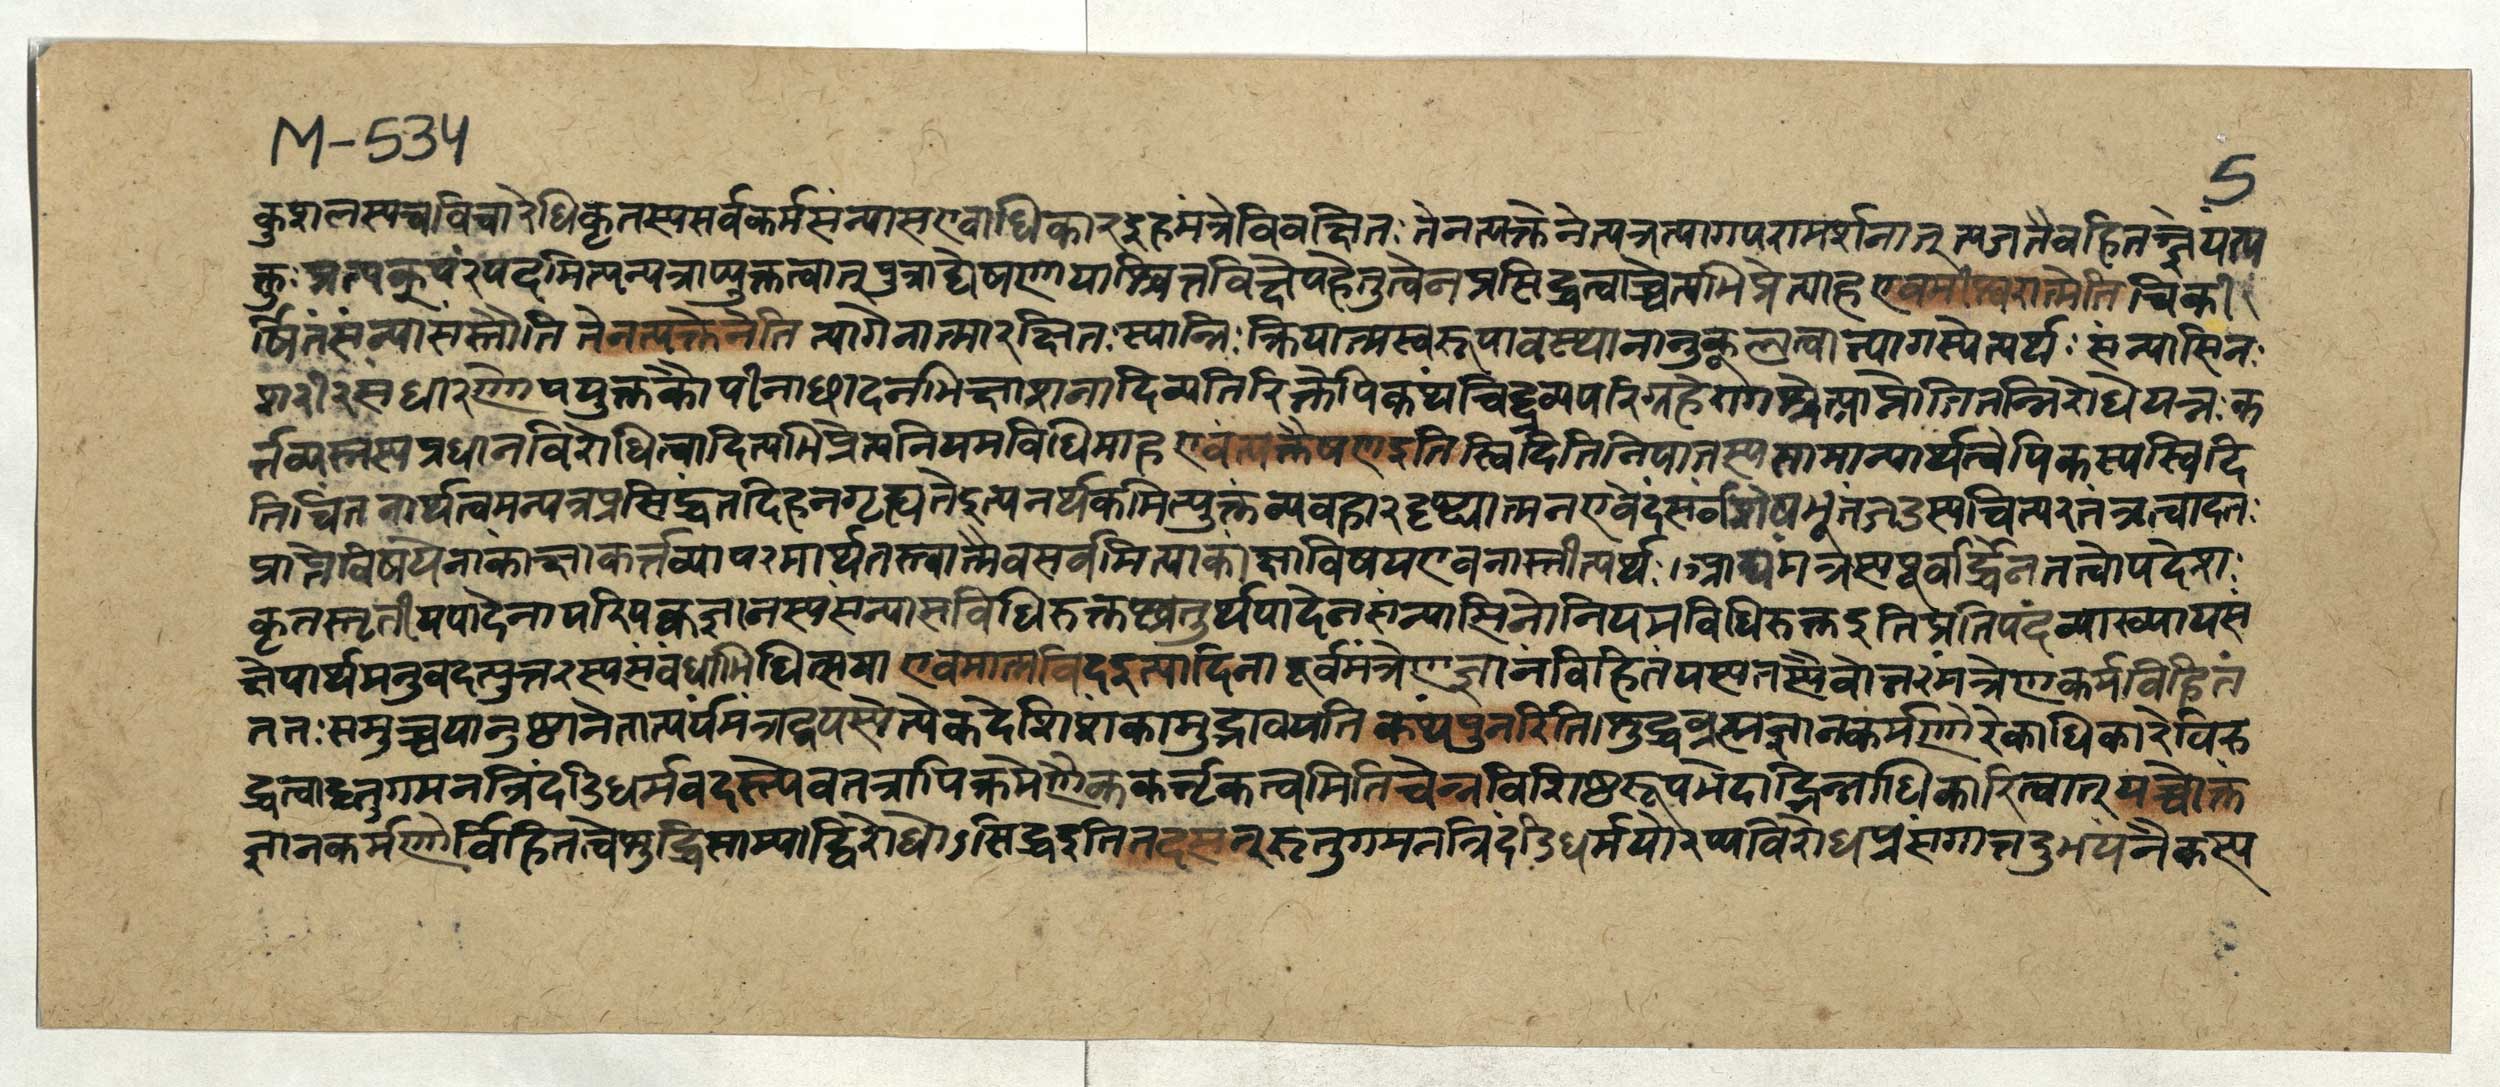 M-534
5
कुशलस्य च विचारेधिकृतस्य सर्वकर्मसंन्यास एवाधिकार इह मंत्रे विवक्षितः तेन त्यक्तेनेत्यत्र त्यागपरामर्शनात् त्यजतैव हि तज्ज्ञेयं त्य
क्तुः प्रत्यक् परं पदमित्यन्यत्राप्युक्तत्वात् पुत्राद्येषणायाश्चित्तविक्षेपहेतुत्वेन प्रसिद्धत्वाच्चेत्यभिप्रेत्याह एवमीश्वरात्मेति चिकी
र्षितं संन्यासं स्तौति तेन त्यक्तेनेति त्यागेनात्मा रक्षितः स्यान्निःक्रियात्मस्वरूपावस्थानानुकूलत्वात्त्यागस्येत्यर्थः संन्यासिनः
शरीरसंधारणोपयुक्तकौपीनाछादनभिक्षाशनादिव्यतिरिक्तेपि कथंचिद्द्रव्यपरिग्रहे प्राप्नोति तन्निरोधे यत्नः क
र्त्तव्यस्तस्य प्रधानविरोधित्वादित्यभिप्रेत्य नियमविधिमाह एवं त्यक्तैषण इति स्विदिति निपातस्य सामान्यार्थत्वेपि कस्य स्विदि
ति चिंतनार्थत्वमन्यत्र प्रसिद्धं तदिह न गृह्यते इत्यनर्थकमित्युक्तं व्यवहारदृष्ट्यात्मन एवेदं सर्वं शेषभूतं जडस्य चित्परतंत्रत्वादतः
प्राप्ते विषये नाकांक्षा कर्त्तव्या परमार्थतस्त्वात्मैव सर्वमित्याकांक्षाविषय एव नास्तीत्यर्थः । आद्यमंत्रस्य पूर्वार्द्धेन तत्त्वोपदेशः
कृतस्तृतीयपादेनापरिपक्वज्ञानस्य संन्यासविधिरुक्तश्चतुर्थपादेन संन्यासिनो नियमविधिरुक्त इति प्रतिपदं व्याख्याय सं
क्षेपार्थमनुवदत्युत्तरस्य संबंधाभिधित्सया एवमात्मविद इत्यादिना पूर्वमंत्रेण ज्ञानं विहितं यस्य तस्यैवोत्तरमंत्रेण कर्म विहितं
ततः समुच्चयानुष्ठाने तात्पर्यं मंत्रद्वयस्येत्येकदेशिशंकामुद्भावयति कथं पुनरिति । शुद्धब्रह्मज्ञानकर्मणोरेकाधिकारे विरु
द्धत्वादृतुगमनत्रिदंडिधर्मवदस्त्येव तत्रापि क्रमेणैककर्त्तृकत्वमिति चेन्न विशिष्टरूपभेदाद्भिन्नाधिकारित्वात् यच्चोक्तं
ज्ञानकर्मणोर्विहितत्वे शुद्धिसाम्याद्विरोधोऽसिद्ध इति तदसत् ऋतुगमनत्रिदंडिधर्मयोरप्यविरोधप्रसंगात्तदुभयं नैकस्य